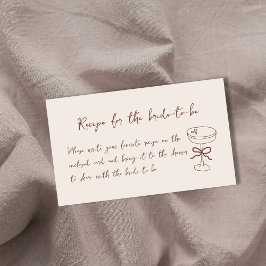 Recipe for the bride-to-be
Please write your favorite recipe on the
enclosed card and bring it to the shower
to share with the bride to be